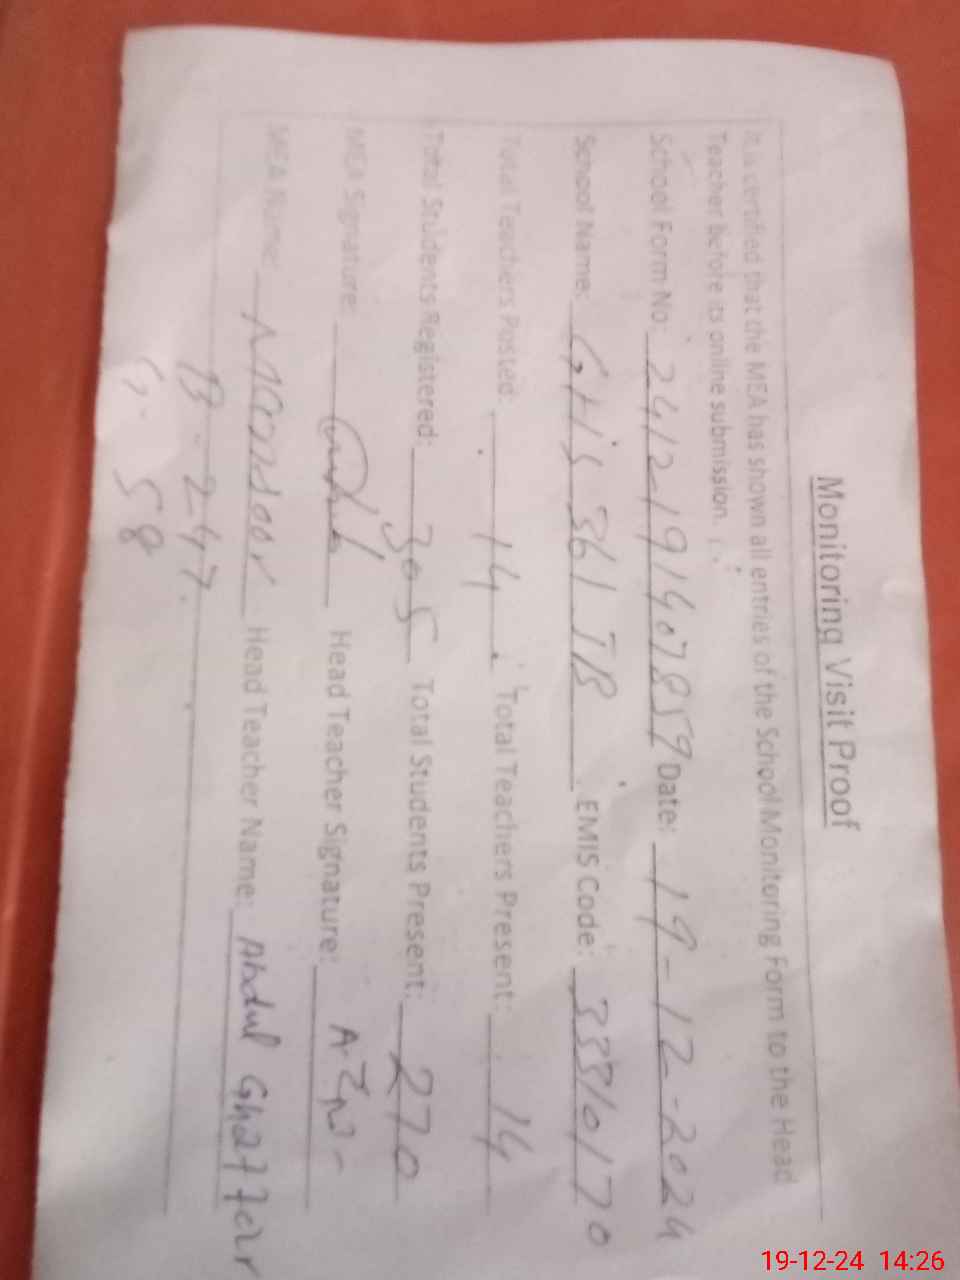 Monitoring Visit Proof
It is certified that the MEA has shown all entries of the School Monitoring Form to the Head
Teacher before its online submission.
School Form No: 2412191407859 Date: 19-12-2024
School Name: GHS 361 JB EMIS Code: 33310170
Total Teachers Posted: 14 Total Teachers Present: 14
Total Students Registered: 305 Total Students Present: 270
MEA Signature: Head Teacher Signature:
MEA Name: Manzoor Head Teacher Name: Abdul Ghaffar
B - 247
G - 58
19-12-24 14:26